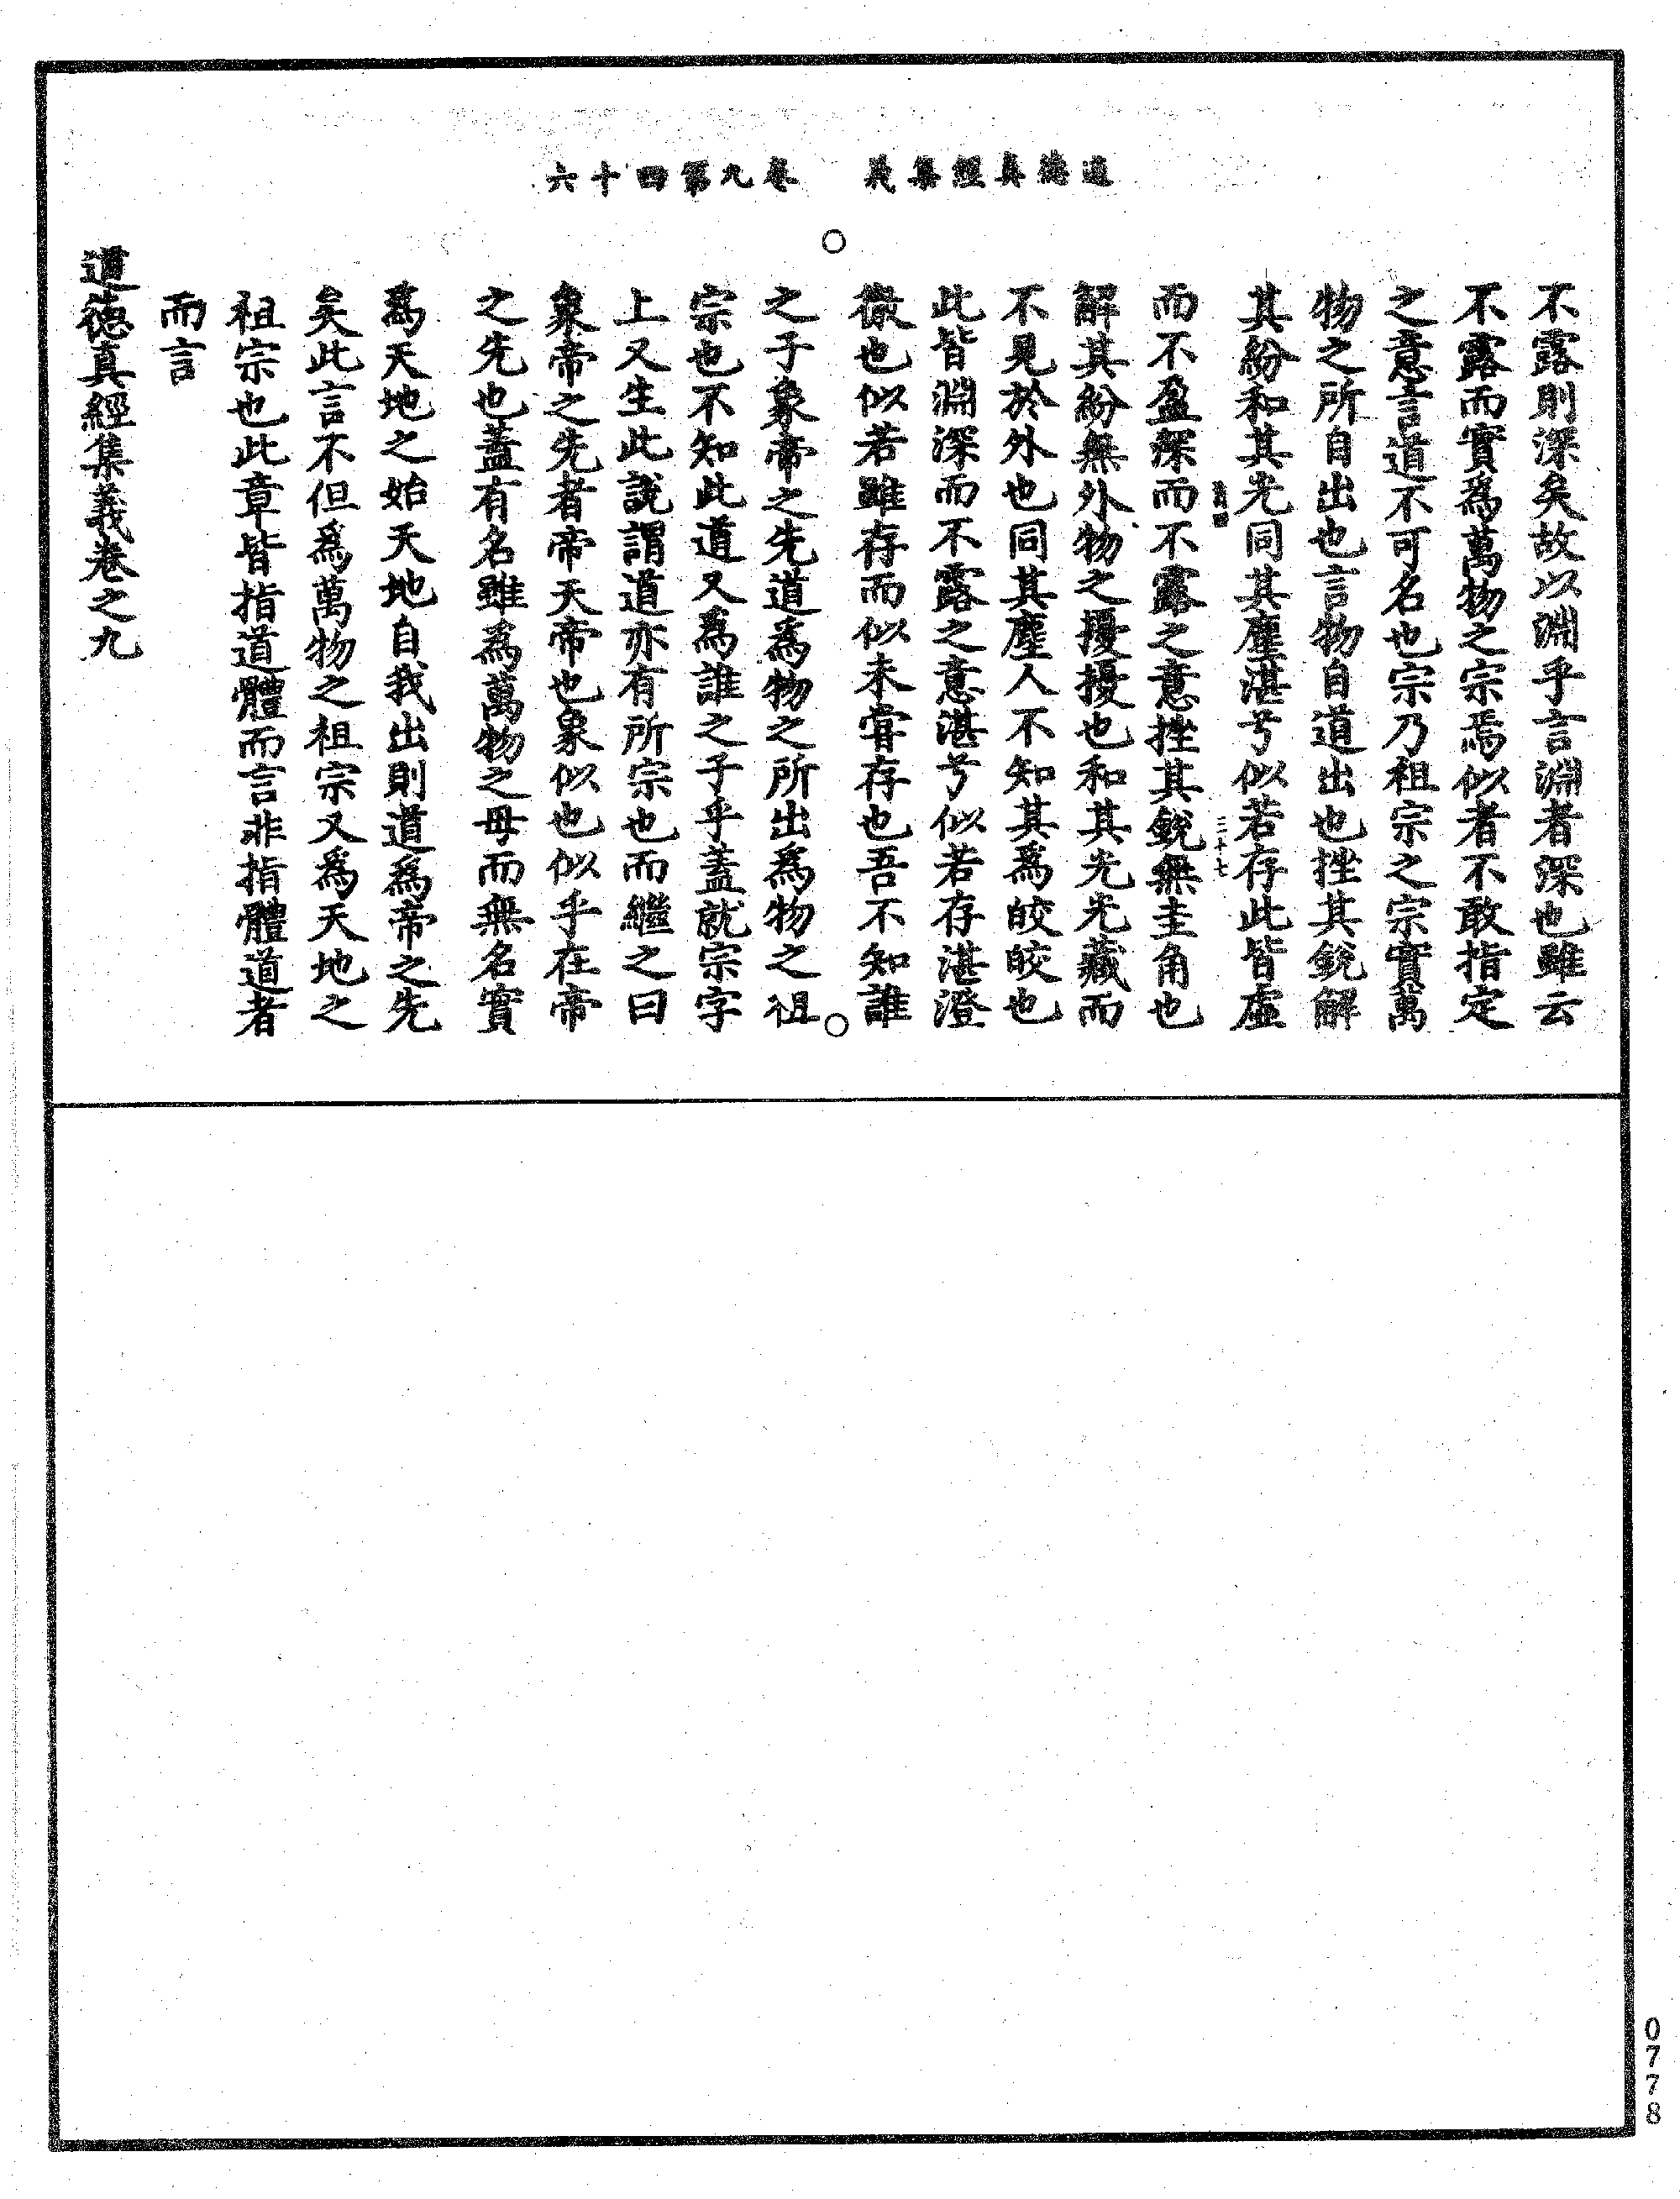 道德真經集義　卷九第四十六
不露則深矣故以淵乎言淵者深也雖云
不露而實為萬物之宗焉似者不敢指定
之意言道不可名也宗乃祖宗之宗實萬
物之所自出也言物自道出也挫其銳解
其紛和其光同其塵湛兮似若存此皆虛
三十七
而不盈深而不露之意挫其銳無圭角也
解其紛無外物之擾擾也和其光光藏而
不見於外也同其塵人不知其為皎皎也
此皆淵深而不露之意湛兮似若存湛澄
徹也似若雖存而似未嘗存也吾不知誰
之子象帝之先道為物之所出為物之祖
宗也不知此道又為誰之子乎蓋就宗字
上又生此說謂道亦有所宗也而繼之曰
象帝之先者帝天帝也象似也似乎在帝
之先也蓋有名雖為萬物之母而無名實
為天地之始天地自我出則道為帝之先
矣此言不但為萬物之祖宗又為天地之
祖宗也此章皆指道體而言非指體道者
而言
道德真經集義卷之九
0778